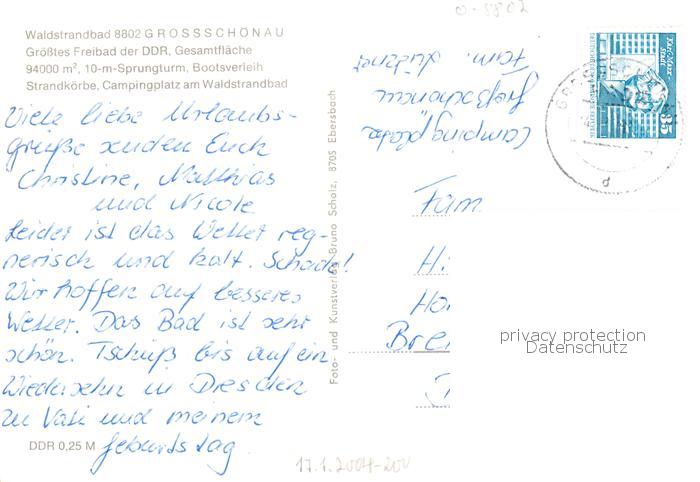 Waldstrandbad 8802 GROSSSCHÖNAU
Größtes Freibad der DDR, Gesamtfläche
94000 m², 10-m-Sprungturm, Bootsverleih
Strandkörbe, Campingplatz am Waldstrandbad
Viele liebe Urlaubs-
grüße senden Euch
Christine, Matthias
und Nicole
Leider ist das Wetter reg-
nerisch und kalt. Schade!
Wir hoffen auf besseres
Wetter. Das Bad ist sehr
schön. Tschüß bis auf ein
Wiedersehn in Dresden
zu Vati und meinem
Geburtstag
DDR 0,25 M
Foto- und Kunstverlag Bruno Scholz, 8705 Ebersbach
Fam.
Campingplatz
Großschönau
Karl-Marx-
Stadt
35
Fam
H
Ho
Bre
privacy protection
Datenschutz
17.1.2004-200